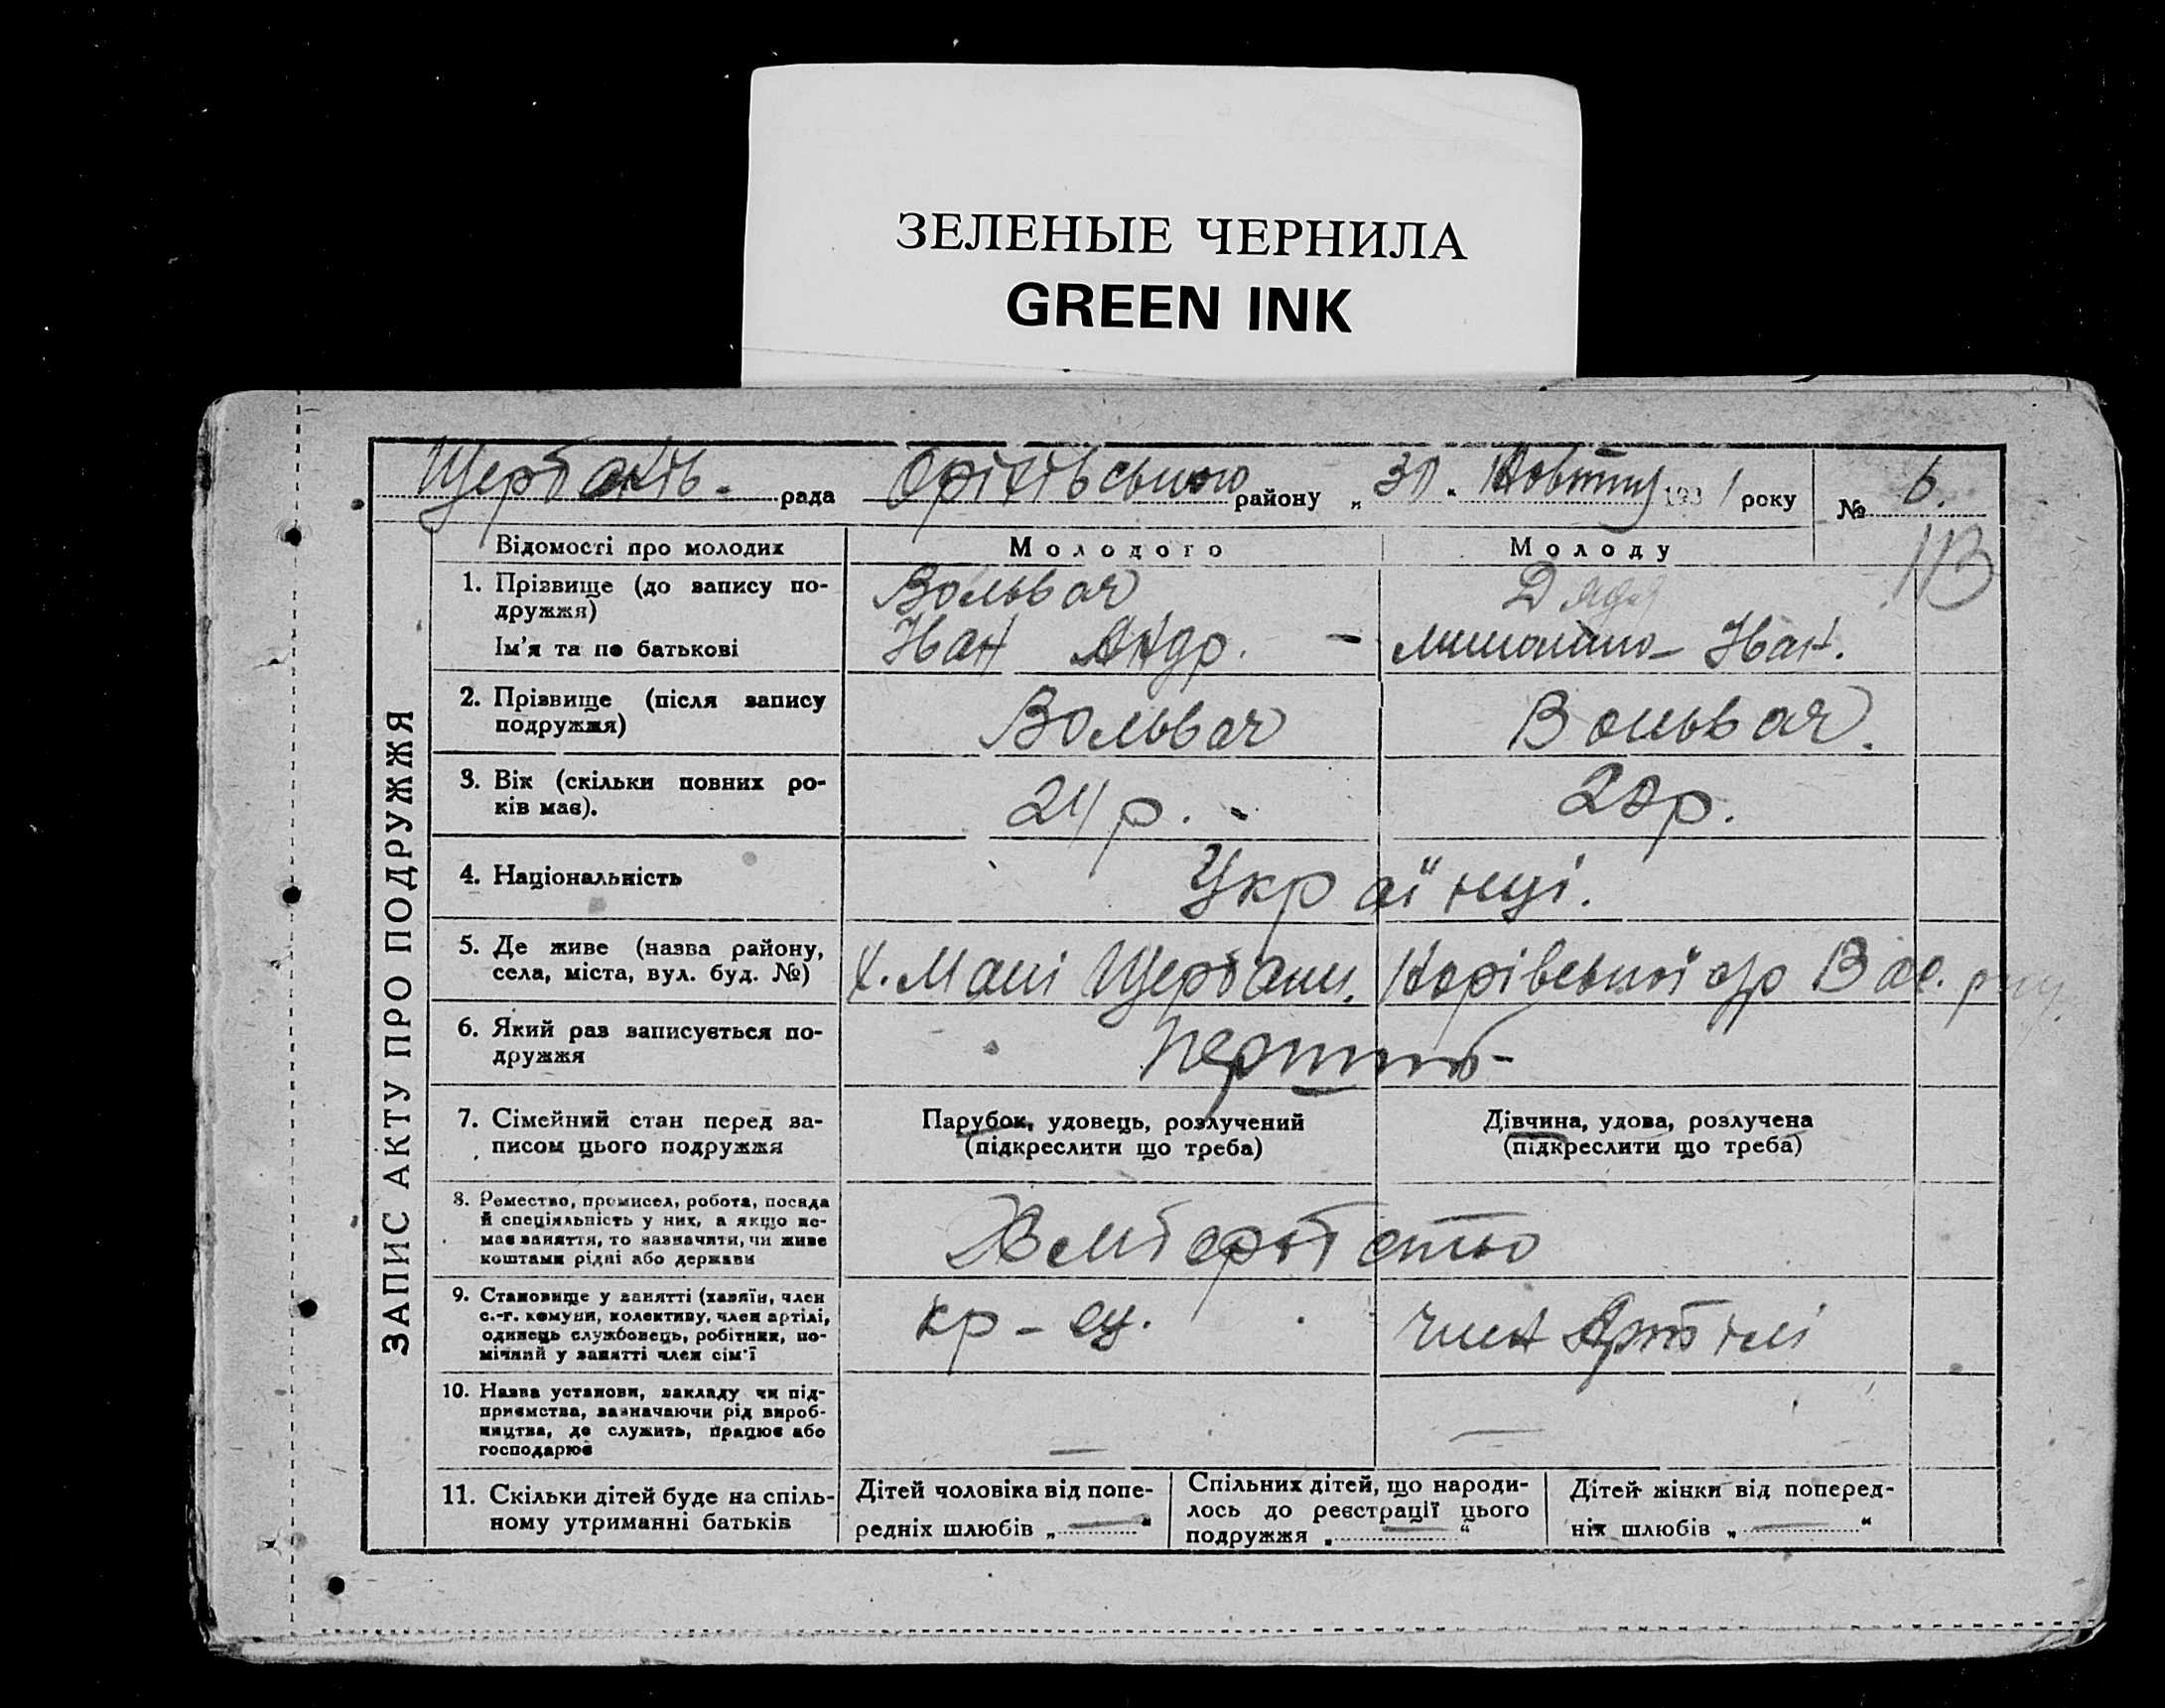 ЗЕЛЕНЫЕ ЧЕРНИЛА
GREEN INK
Щербаків. рада Оріхівського району „30" Жовтня 1931 року № 6.
ЗАПИС АКТУ ПРО ПОДРУЖЖЯ
Відомості про молодих Молодого Молоду
1. Прізвище (до запису по-
дружжя) Вольвач
Ім'я та по батькові Іван Андр. Іван.
2. Прізвище (після запису
подружжя) Вольвач Вольвач.
3. Вік (скільки повних ро-
ків має). 24 р. 20 р.
4. Національність Українці.
5. Де живе (назва району,
села, міста, вул. буд. №) х. Малі Щербаки. Вас.
6. Який раз записується по-
дружжя
7. Сімейний стан перед за-
писом цього подружжя
Парубок, удовець, розлучений
(підкреслити що треба)
Дівчина, удова, розлучена
(підкреслити що треба)
8. Ремество, промисел, робота, посада
й спеціяльність у них, а якщо не-
має заняття, то зазначити, чи живе
коштами рідні або держави
Хліборобство
9. Становище у занятті (хазяїн, член
с.-г. комуни, колективу, член артілі,
одинець службовець, робітник, по-
мічний у занятті член сім'ї
кр-ец. член Артілі
10. Назва установи, закладу чи під-
приємства, зазначаючи рід вироб-
ництва, де служить, працює або
господарює
— —
11. Скільки дітей буде на спіль-
ному утриманні батьків
Дітей чоловіка від попе-
редніх шлюбів „—"
Спільних дітей, що народи-
лось до реєстрації цього
подружжя „—"
Дітей жінки від поперед-
ніх шлюбів „—"